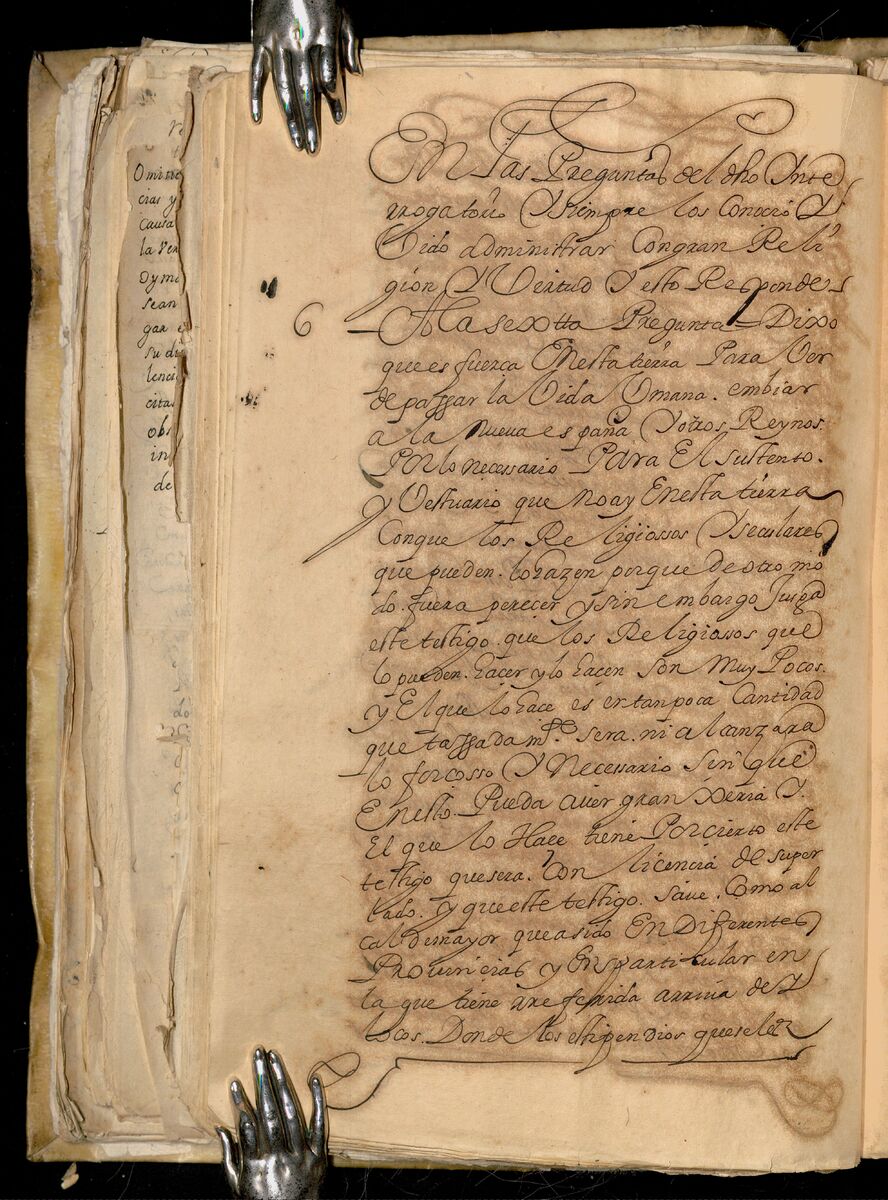 Omiti
cias y
causa
la Ver
oy mi
sean
gar e
su di
lenci
cita
obs
in
de
En las Preguntas del dho Inte
rrogatorio Y siempre los Conoció Y
Vido administrar Con gran Reli
gion Y Virtud Y esto Responde
6
A la sextta Pregunta = Dixo
que es fuerca En esta tierra Para Ver
de passar la Vida Umana. embiar
a la nueva españa Y otros Reynos
Por lo necessario Para El sustento.
y Vestuario que no ay En esta tierra
Con que los Religiossos Y seculares
que pueden. lo hazen porque de otro mo
do. fuera perecer y sin embargo Jusga
este testigo. que los Religiossos que
lo pueden. hacer y lo hacen son muy Pocos.
y El que lo hace es en tan poca Cantidad
que tassadamte. sera. ni alcanzara
lo forcosso Y Necessario sin que
En esto Pueda aver gran Xeria Y
El que lo Hace tiene Por cierto este
testigo que sera. Con licencia de su per
lado. Y que este testigo. save. Como al
cal de mayor que a sido En Diferentes
Provincias y En particular en
la que tiene rreferida arriva de Y
locos. Donde los estipendios que se les